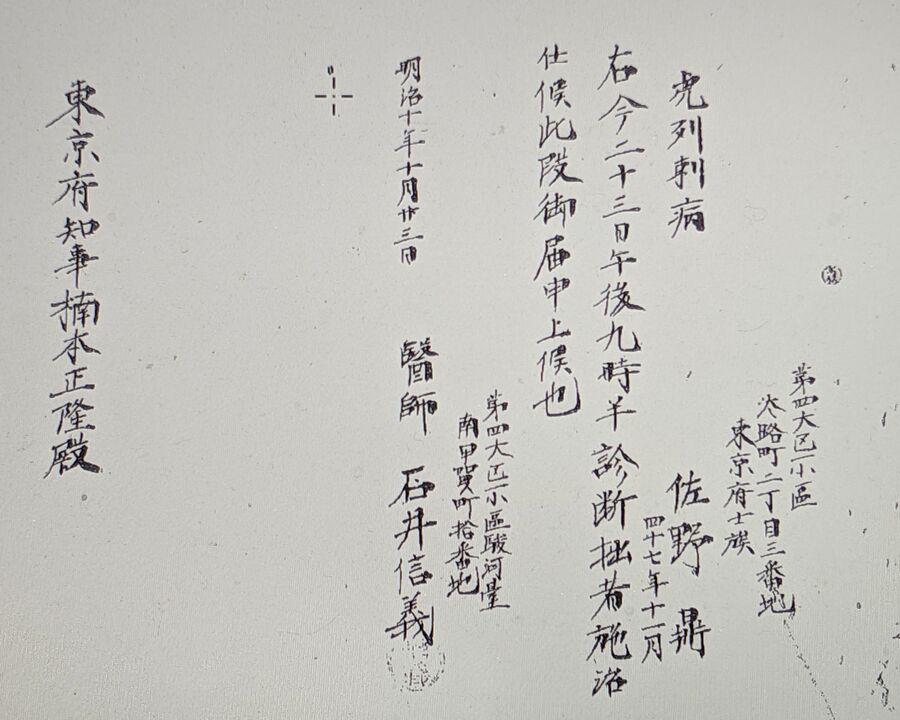 第四大区一小區
淡路町二丁目三番地
東京府士族
佐野鼎
四十七年十一月
虎列剌病
右今二十三日午後九時半診断拙者施治
仕候此段御届申上候也
第四大区一小區駿河臺
南甲賀町拾番地
明治十年十月廿三日
醫師 石井信義
東京府知事楠本正隆殿